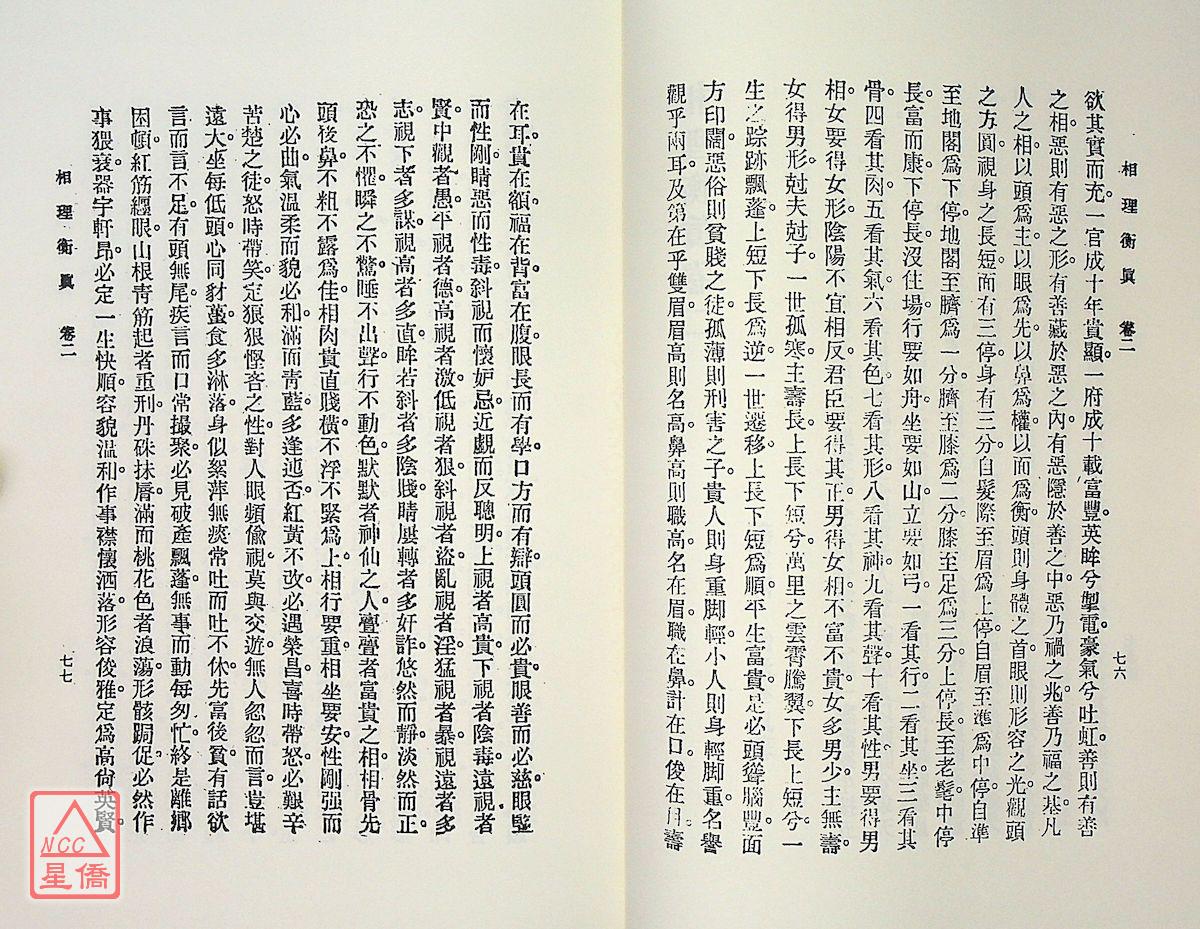 相理衡眞　卷二
七六
欲其實而充。一官成十年貴顯。一府成十載富豐。英眸兮掣電。豪氣兮吐虹。善則有善
之相。惡則有惡之形。有善藏於惡之內。有惡隱於善之中。惡乃禍之兆。善乃福之基。凡
人之相。以頭爲主。以眼爲先。以鼻爲權。以面爲衡。頭則身體之首。眼則形容之光。觀頭
之方圓。視身之長短。面有三停。身有三分。自髮際至眉爲上停。自眉至準爲中停。自準
至地閣爲下停。地閣至臍爲一分。臍至膝爲二分。膝至足爲三分。上停長。至老髦。中停
長。富而康。下停長。沒住場。行要如舟。坐要如山。立要如弓。一看其行。二看其坐。三看其
骨。四看其肉。五看其氣。六看其色。七看其形。八看其神。九看其聲。十看其性。男要得男
相。女要得女形。陰陽不宜相反。君臣要得其正。男得女相。不富不貴。女多男少。主無壽。
女得男形。尅夫尅子。一世孤寒。主壽長。上長下短兮。萬里之雲霄騰翼。下長上短兮。一
生之踪跡飄蓬。上短下長爲逆。一世遷移。上長下短爲順。平生富貴。是必頭聳腦豐。面
方印闊。惡俗則貧賤之徒。孤薄則刑害之子。貴人則身重脚輕。小人則身輕脚重。名譽
觀乎兩耳。及第在乎雙眉。眉高則名高。鼻高則職高。名在眉。職在鼻。計在口。俊在目。壽
在耳。貴在額。福在背。富在腹。眼長而有學。口方而有辯。頭圓而必貴。眼善而必慈。眼竪
而性剛。睛惡而性毒。斜視而懷妒忌。近覷而反聰明。上視者高貴。下視者陰毒。遠視者
賢。中觀者愚。平視者德。高視者激。低視者狠。斜視者盜。亂視者淫。猛視者暴。視遠者多
志。視下者多謀。視高者多直。眸若斜者多陰賤。睛屢轉者多奸詐。悠然而靜。淡然而正。
恐之不懼。瞬之不驚。睡不出聲。行不動色。默默者神仙之人。亹亹者富貴之相。相骨先
頭後鼻。不粗不露爲佳。相肉貴直賤橫。不浮不緊爲上。相行要重。相坐要安。性剛强而
心必曲。氣溫柔而貌必和。滿面靑藍。多逢迍否。紅黃不改。必遇榮昌。喜時帶怒。必艱辛
苦楚之徒。怒時帶笑。定狠狠慳吝之性。對人眼頻偷視。莫與交遊。無人忽忽而言。豈堪
遠大。坐每低頭。心同豺蠆。食多淋落。身似絮萍。無痰常吐而吐不休。先富後貧。有話欲
言而言不足。有頭無尾。疾言而口常撮聚。必見破產飄蓬。無事而動每匆忙。終是離鄉
困頓。紅筋纒眼。山根靑筋起者重刑。丹硃抹唇。滿面桃花色者浪蕩。形骸跼促。必然作
事猥衰。器宇軒昂。必定一生快順。容貌溫和。作事襟懷洒落。形容俊雅。定爲高尙英賢。
相理衡眞　卷二
七七
NCC
星僑